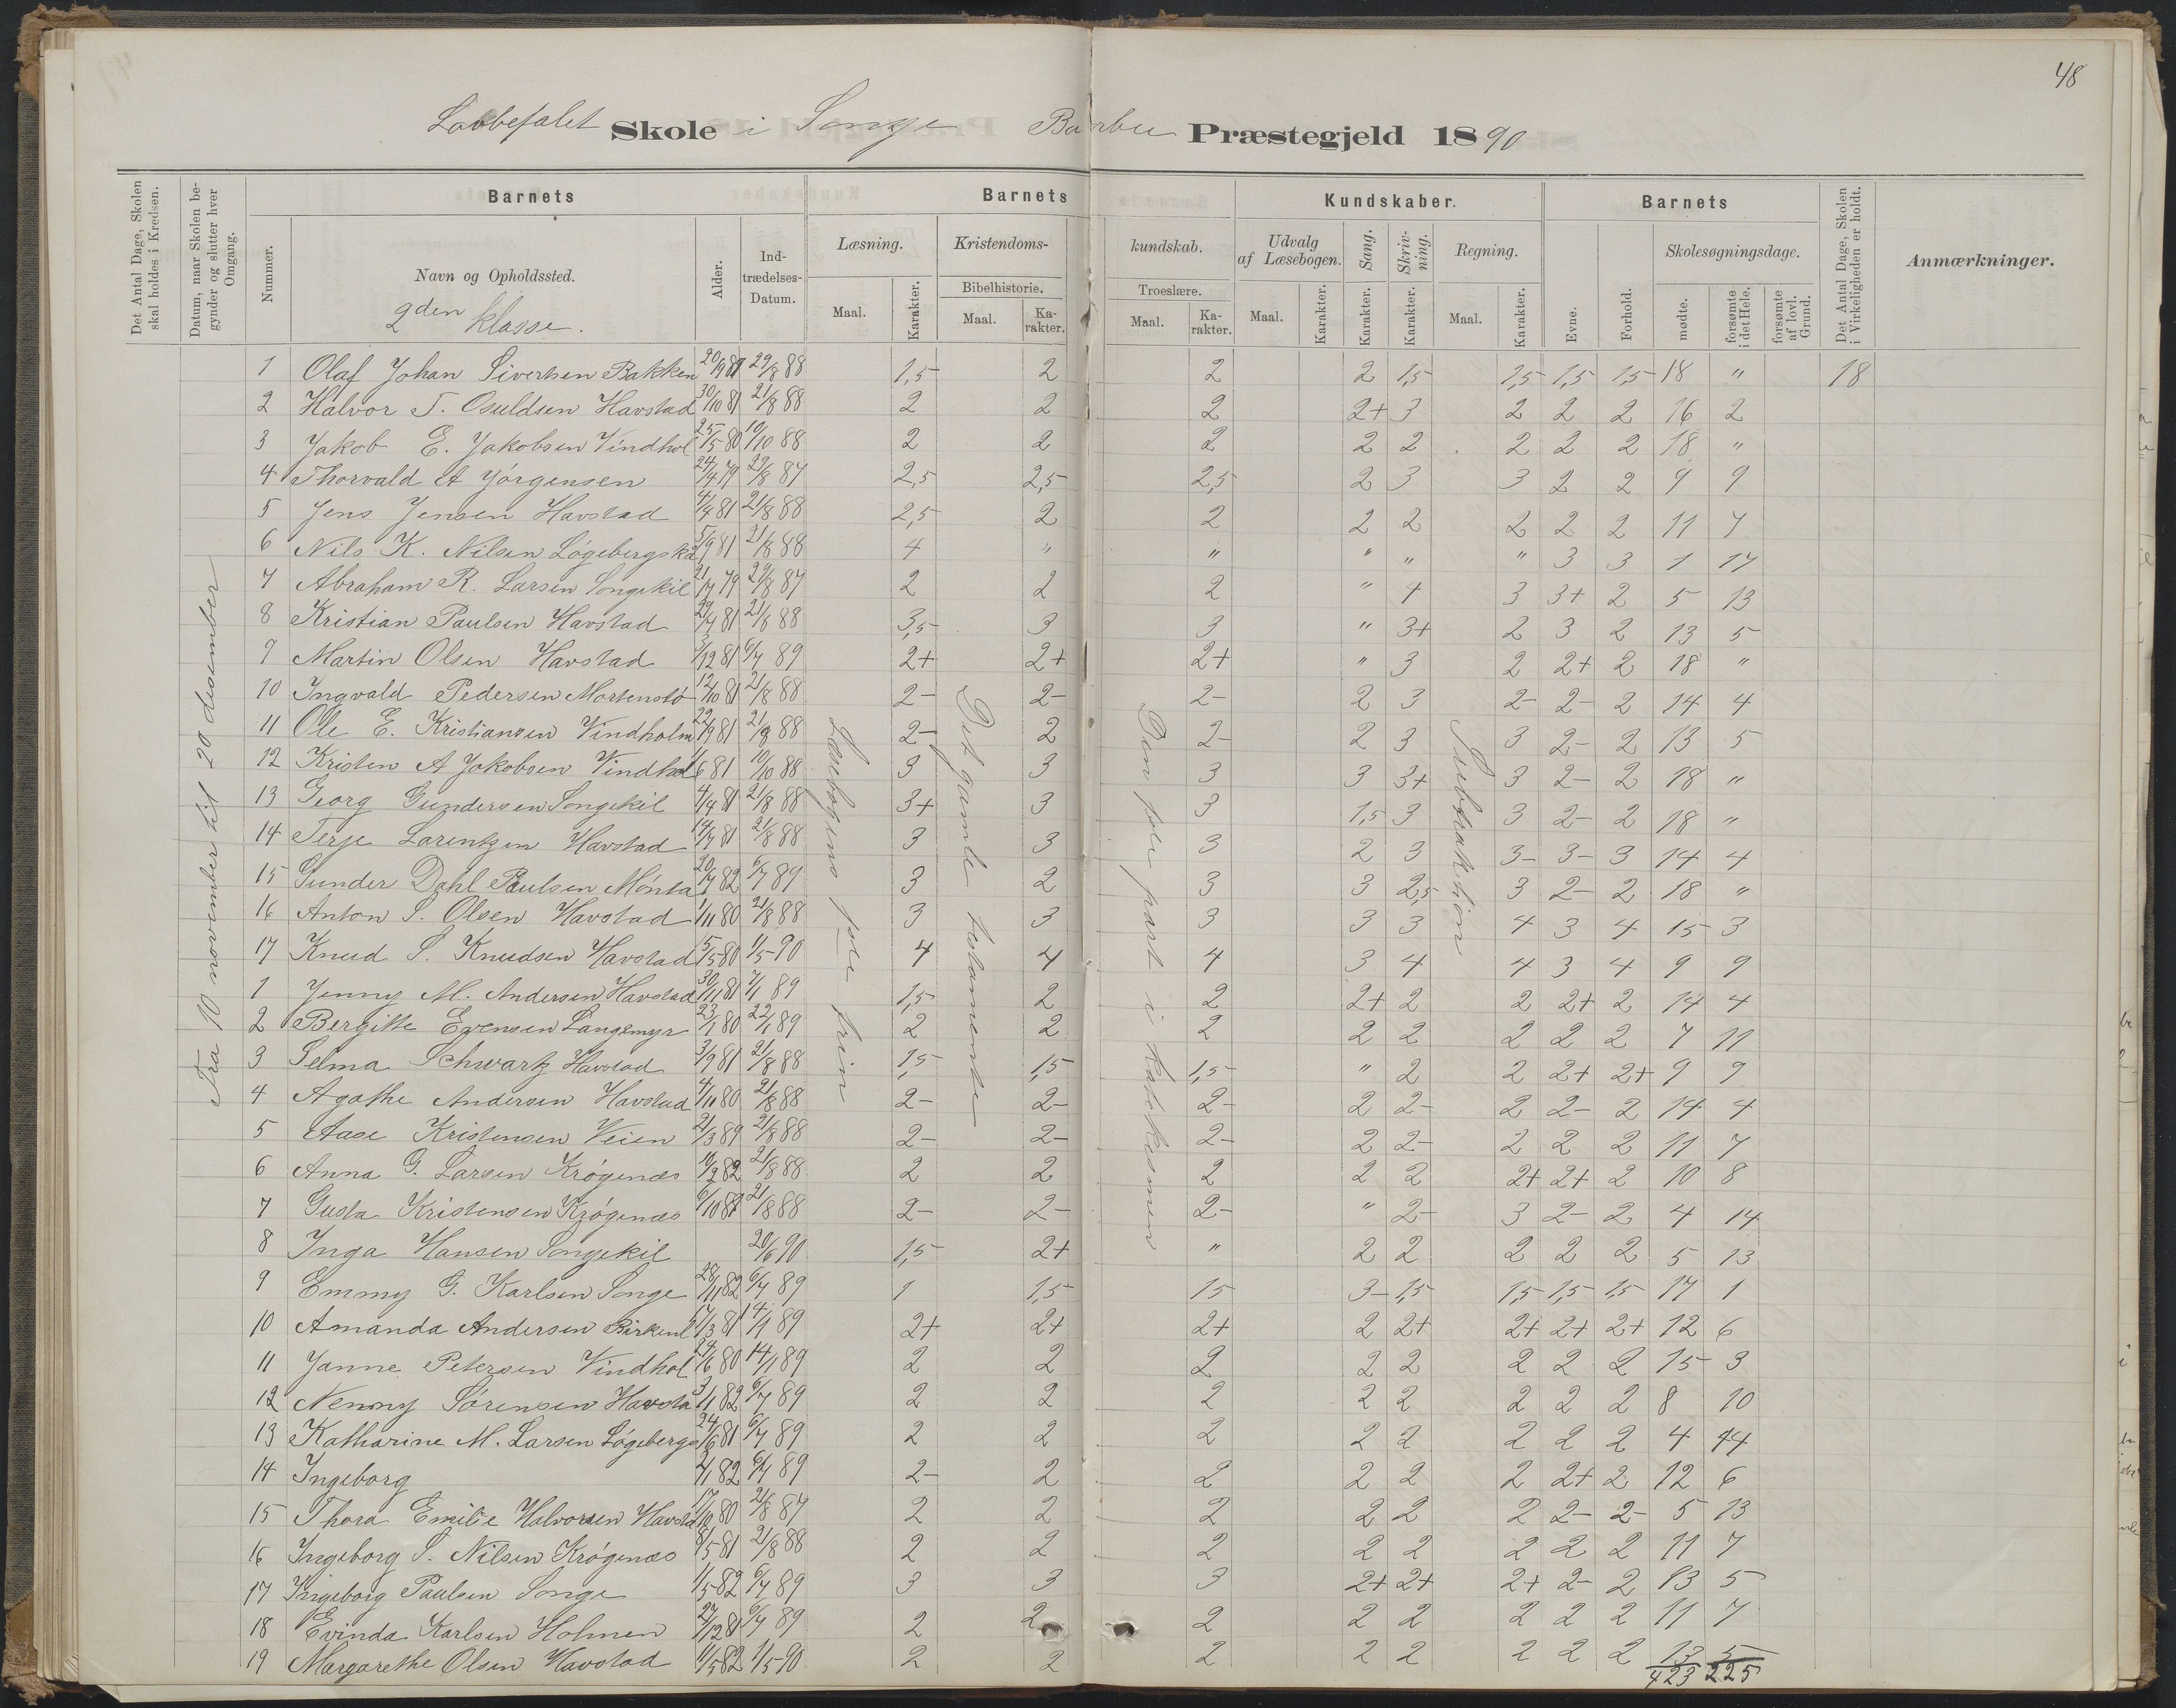 48
Lovbefalet Skole i Songe Barbu Præstegjeld 1890
Det Antal Dage, Skolen skal holdes i Kredsen.
Datum, naar Skolen begynder og slutter hver Omgang.
Barnets
Barnets
Kundskaber.
Barnets
Det Antal Dage, Skolen i Virkeligheden er holdt.
Anmærkninger.
Nummer.
Navn og Opholdssted.
Alder.
Ind-trædelses-Datum.
Læsning.
Kristendoms-
kundskab.
Udvalg af Læsebogen.
Sang.
Skriv-ning.
Regning.
Evne.
Forhold.
Skolesøgningsdage.
Bibelhistorie.
Troeslære.
Maal. Karakter. Maal. Ka-rakter. Maal. Ka-rakter. Maal. Karakter. Karakter. Karakter. Maal. Karakter. mødte. forsømte i det Hele. forsømte af lovl. Grund.
2den klasse.
Fra 10 november til 20 desember
Læsebogens 1ste trin
Det gamle testamente
Den 1ste part i katekismen
Subtraktion
1 Olaf Johan Sivertsen Bakken 20/9 81 29/8 88 1,5 2 2 2 1,5 1,5 1,5 1,5 18 " 18
2 Halvor T. Osuldsen Havstad 30/10 81 21/8 88 2 2 2 2+ 3 2 2 2 16 2
3 Jakob E. Jakobsen Vindhol 25/5 80 10/10 88 2 2 2 2 2 2 2 2 18 "
4 Thorvald A Jørgensen 24/9 79 29/8 87 2,5 2,5 2,5 2 3 3 2 2 9 9
5 Jens Jensen Havstad 4/4 81 21/8 88 2,5 2 2 2 2 2 2 2 11 7
6 Nils K. Nilsen Løgebergskå 5/9 81 21/8 88 4 " " " " " 3 3 1 17
7 Abraham R. Larsen Songekil 21/7 79 29/8 87 2 2 2 " 4 3 3+ 2 5 13
8 Kristian Paulsen Havstad 29/7 81 21/8 88 3,5 3 3 " 3+ 2 3 2 13 5
9 Martin Olsen Havstad 3/12 81 6/7 89 2+ 2+ 2+ " 3 2 2+ 2 18 "
10 Ingvald Pedersen Mortenstø 12/10 81 21/8 88 2- 2- 2- 2 3 2- 2- 2 14 4
11 Ole E. Kristiansen Vindholm 22/9 81 21/8 88 2- 2 2- 2 3 3 2- 2 13 5
12 Kristen A Jakobsen Vindhol 1/6 81 10/10 88 3 3 3 3 3+ 3 2- 2 18 "
13 Georg Gundersen Songekil 4/4 81 21/8 88 3+ 3 3 1,5 3 3 2- 2 18 "
14 Terje Lorentzen Havstad 14/7 81 21/8 88 3 3 3 2 3 3- 3- 3 14 4
15 Gunder Dahl Paulsen Mønta 20/7 82 6/7 89 3 2 3 3 2,5 3 2- 2 18 "
16 Anton S. Olsen Havstad 1/11 80 21/8 88 3 3 3 3 3 4 3 4 15 3
17 Knud S. Knudsen Havstad 5/5 80 1/5 90 4 4 4 3 4 4 3 4 9 9
1 Jenny M. Andersen Havstad 30/11 81 7/1 89 1,5 2 2 2+ 2 2 2+ 2 14 4
2 Bergitte Evensen Langemyr 23/1 80 22/1 89 2 2 2 2 2 2 2 2 7 11
3 Selma Schwartz Havstad 3/9 81 21/8 88 1,5 1,5 1,5 " 2 2 2+ 2+ 9 9
4 Agathe Andersen Havstad 4/11 80 21/8 88 2- 2- 2- 2 2- 2 2- 2 14 4
5 Aase Kristensen Veien 21/3 89 21/8 88 2- 2- 2- 2 2- 2 2 2 11 7
6 Anna G. Larsen Krøgenæs 10/2 82 21/8 88 2 2 2 2 2 2+ 2+ 2 10 8
7 Gusta Kristensen Krøgenæs 6/10 81 21/8 88 2- 2- 2- " 2- 3 2- 2 4 14
8 Inga Hansen Songekil 20/6 90 1,5 2+ " 2 2 2 2 2 5 13
9 Emmy G. Karlsen Songe 28/11 82 6/7 89 1 1,5 15 3- 1,5 1,5 1,5 1,5 17 1
10 Amanda Andersen Birkenl 17/3 81 14/1 89 2+ 2+ 2+ 2 2+ 2+ 2+ 2+ 12 6
11 Janne Petersen Vindhol 29/6 80 14/1 89 2 2 2 2 2 2 2 2 15 3
12 Nenny Sørensen Havsta 3/1 82 6/7 89 2 2 2 2 2 2 2 2 8 10
13 Katharine M. Larsen Løgebergs 24/6 81 6/7 89 2 2 2 2 2 2 2 2 4 14
14 Ingeborg 2/1 82 6/7 89 2- 2 2 2 2 2 2+ 2 12 6
15 Thora Emilie Halvorsen Havsta 17/10 80 21/8 87 2 2 2 2 2 2 2- 2- 5 13
16 Ingeborg S. Nilsen Krøgenæs 8/5 81 21/8 88 2 2 2 2 2 2 2 2 11 7
17 Ingeborg Paulsen Songe 1/5 82 6/7 89 3 3 3 2+ 2+ 2+ 2- 2 13 5
18 Evinda Karlsen Holmen 27/12 81 6/7 89 2 2 2 2 2 2 2 2 11 7
19 Margarethe Olsen Havstad 11/5 82 1/5 90 2 2 2 2 2 2 2 2 13 5
423 225